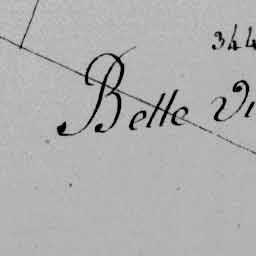 344
Belle Vi